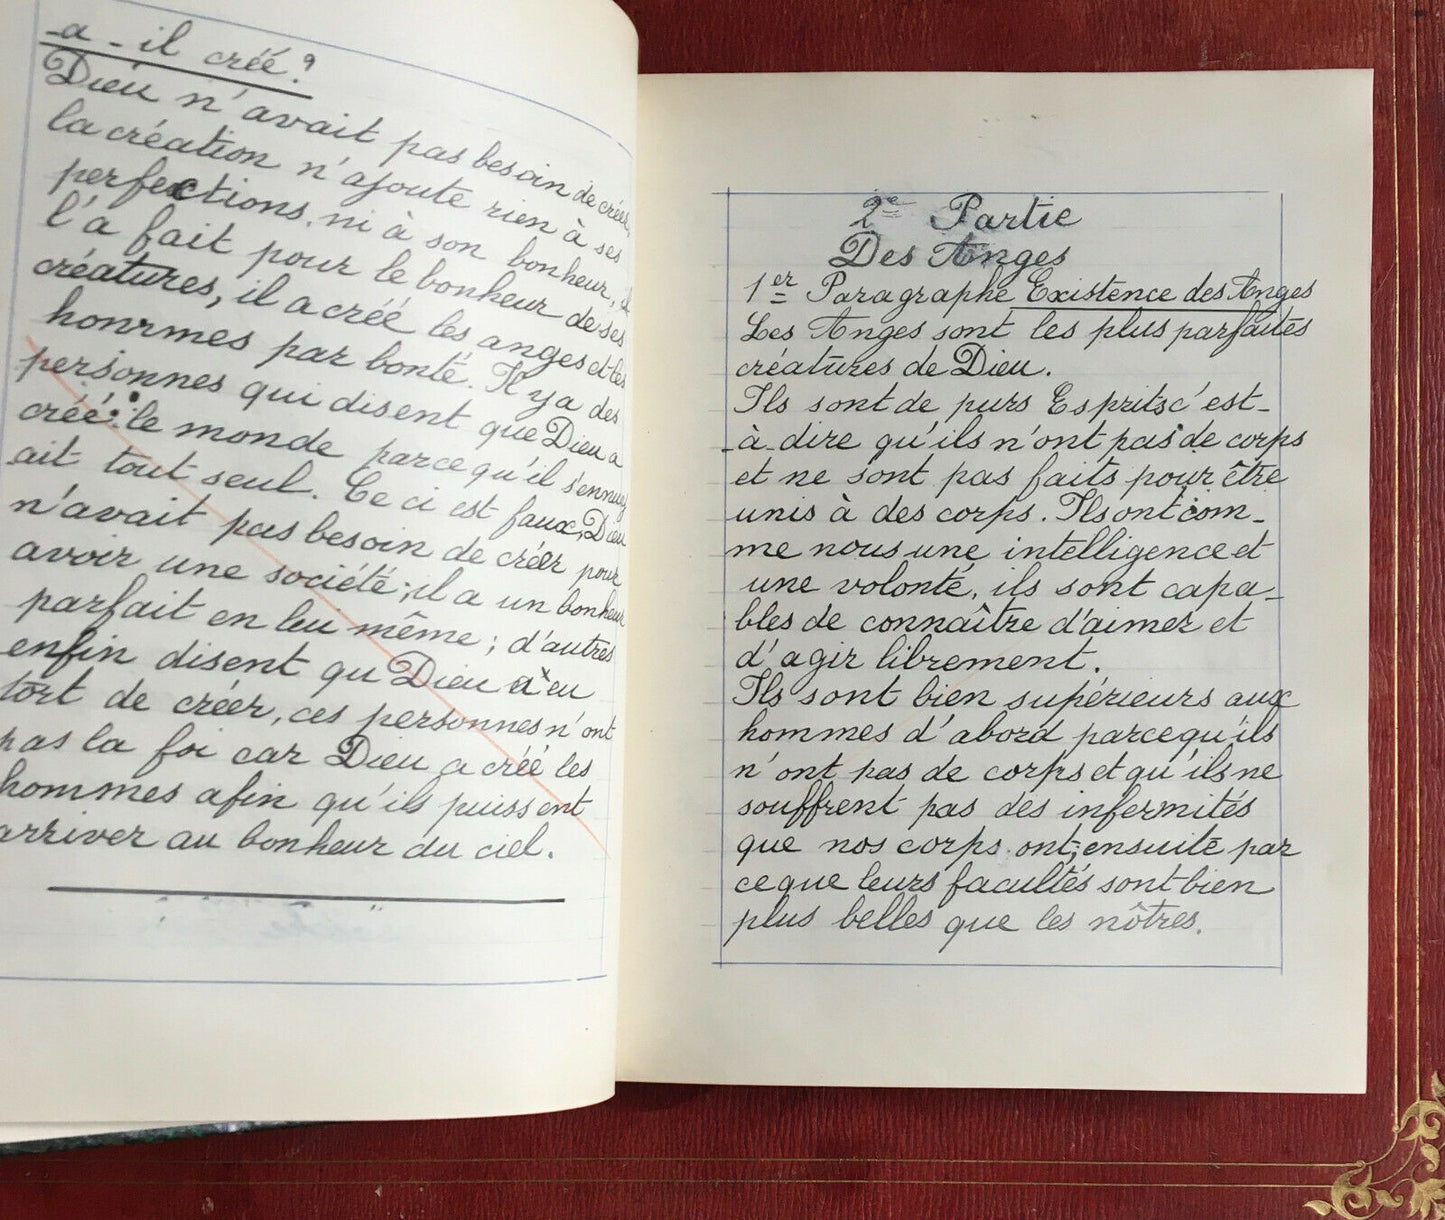 -a-il créé?
Dieu n'avait pas besoin de créer,
la création n'ajoute rien à ses
perfections, ni à son bonheur, il
l'a fait pour le bonheur de ses
créatures, il a créé les anges et les
hommes par bonté. Il y a des
personnes qui disent que Dieu a
créé le monde parce qu'il s'ennuy
-ait tout seul. Ce ci est faux, Dieu
n'avait pas besoin de créer pour
avoir une société; il a un bonheur
parfait en lui même; d'autres
enfin disent qu Dieu a eu
tort de créer, ces personnes n'ont
pas la foi car Dieu a créé les
hommes afin qu'ils puissent
arriver au bonheur du ciel.
2e Partie
Des Anges
1er Paragraphe Existence des Anges
Les Anges sont les plus parfaites
créatures de Dieu.
Ils sont de purs Esprits c'est-
-à-dire qu'ils n'ont pas de corps
et ne sont pas faits pour être
unis à des corps. Ils ont com-
me nous une intelligence et
une volonté, ils sont capa-
bles de connaître d'aimer et
d'agir librement.
Ils sont bien supérieurs aux
hommes d'abord parce qu'ils
n'ont pas de corps et qu'ils ne
souffrent pas des infermités
que nos corps ont; ensuite par
ce que leurs facultés sont bien
plus belles que les nôtres.